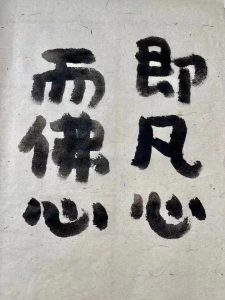 即凡心
而佛心